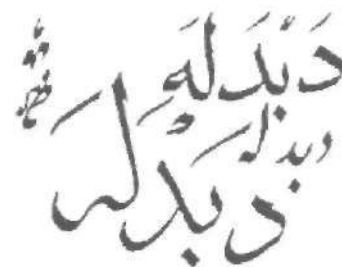 دَبْدَلَهِ
دبدله
دبَدْلَه